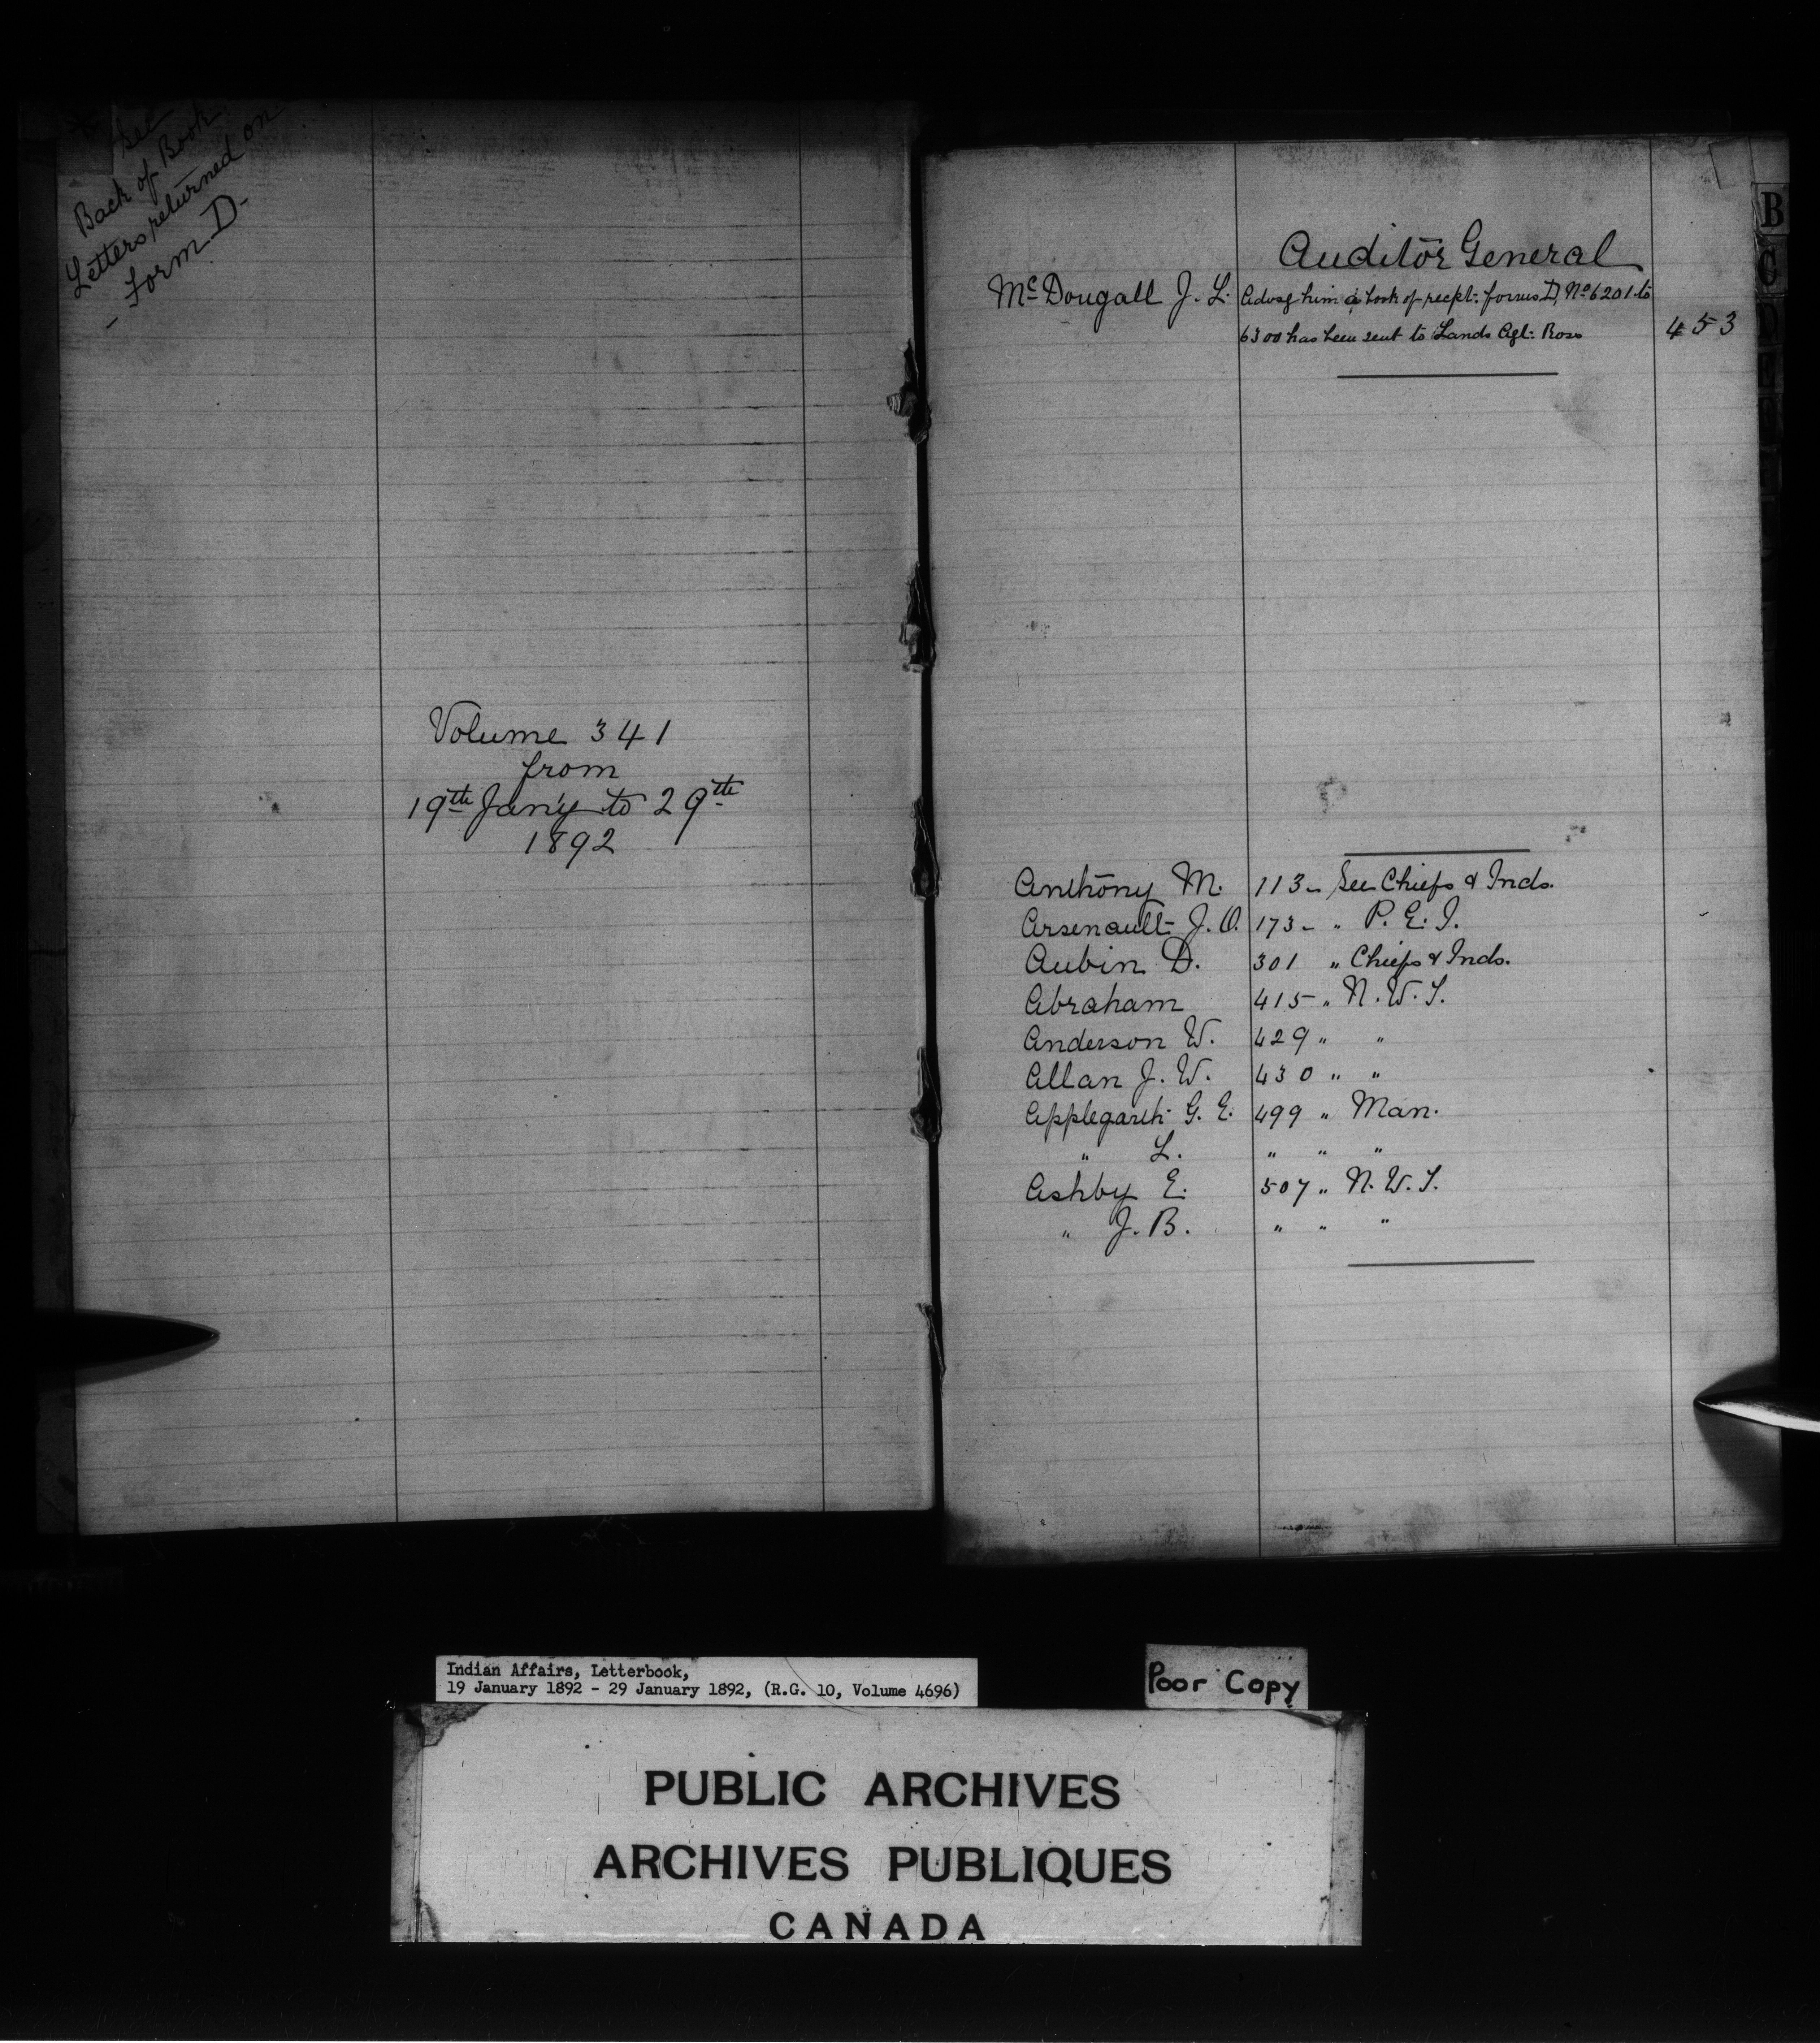 See
Back of Book
Letters returned on
- Form D -
Volume 341
from
19th Jan'y to 29th
1892
Auditor General
McDougall J. L. Advsg him a book of recpt: forms D, No 6201 to
6300 has been sent to Lands Agt: Ross 453
Anthony M. 113 - See Chiefs & Inds.
Arsenault J. O. 173 - " P. E. I.
Aubin D. 301 " Chiefs & Inds.
Abraham 415 " N. W. T.
Anderson W. 429 " "
Allan J. W. 430 " "
Applegarth G. E. 499 " Man.
" L. " " "
Ashby E. 507 " N. W. T.
" J. B. " " "
B
G
D
E
Indian Affairs, Letterbook,
19 January 1892 - 29 January 1892, (R.G. 10, Volume 4696)
Poor Copy
PUBLIC ARCHIVES
ARCHIVES PUBLIQUES
CANADA